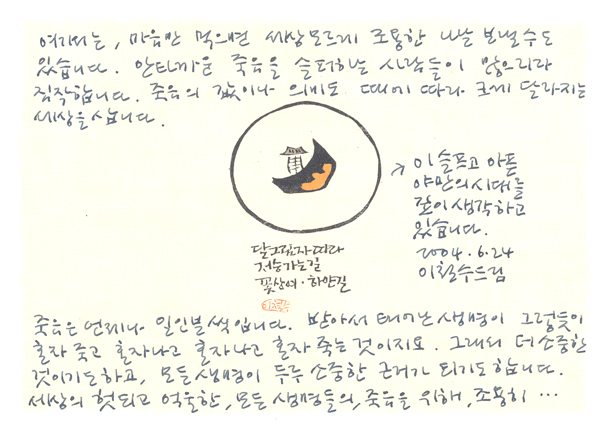 여기서는, 마음만 먹으면 세상모르게 조용한 나날 보낼 수도
있습니다. 안타까운 죽음을 슬퍼하는 사람들이 많으리라
짐작합니다. 죽음의 값이나 의미도 때에 따라 크게 달라지는
세상을 삽니다.
→ 이 슬프고 아픈
야만의 시대를
깊이 생각하고
있습니다.
2004.6.24
이철수 드림
달그림자 따라
저승 가는 길
꽃상여·하얀길
죽음은 언제나 일인분씩입니다. 받아서 태어난 생명이 그렇듯이
혼자 죽고 혼자 나고 혼자 나고 혼자 죽는 것이지요. 그래서 더 소중한
것이기도 하고, 모든 생명이 두루 소중한 근거가 되기도 합니다.
세상의 헛되고 억울한, 모든 생명들의, 죽음을 위해, 조용히 …